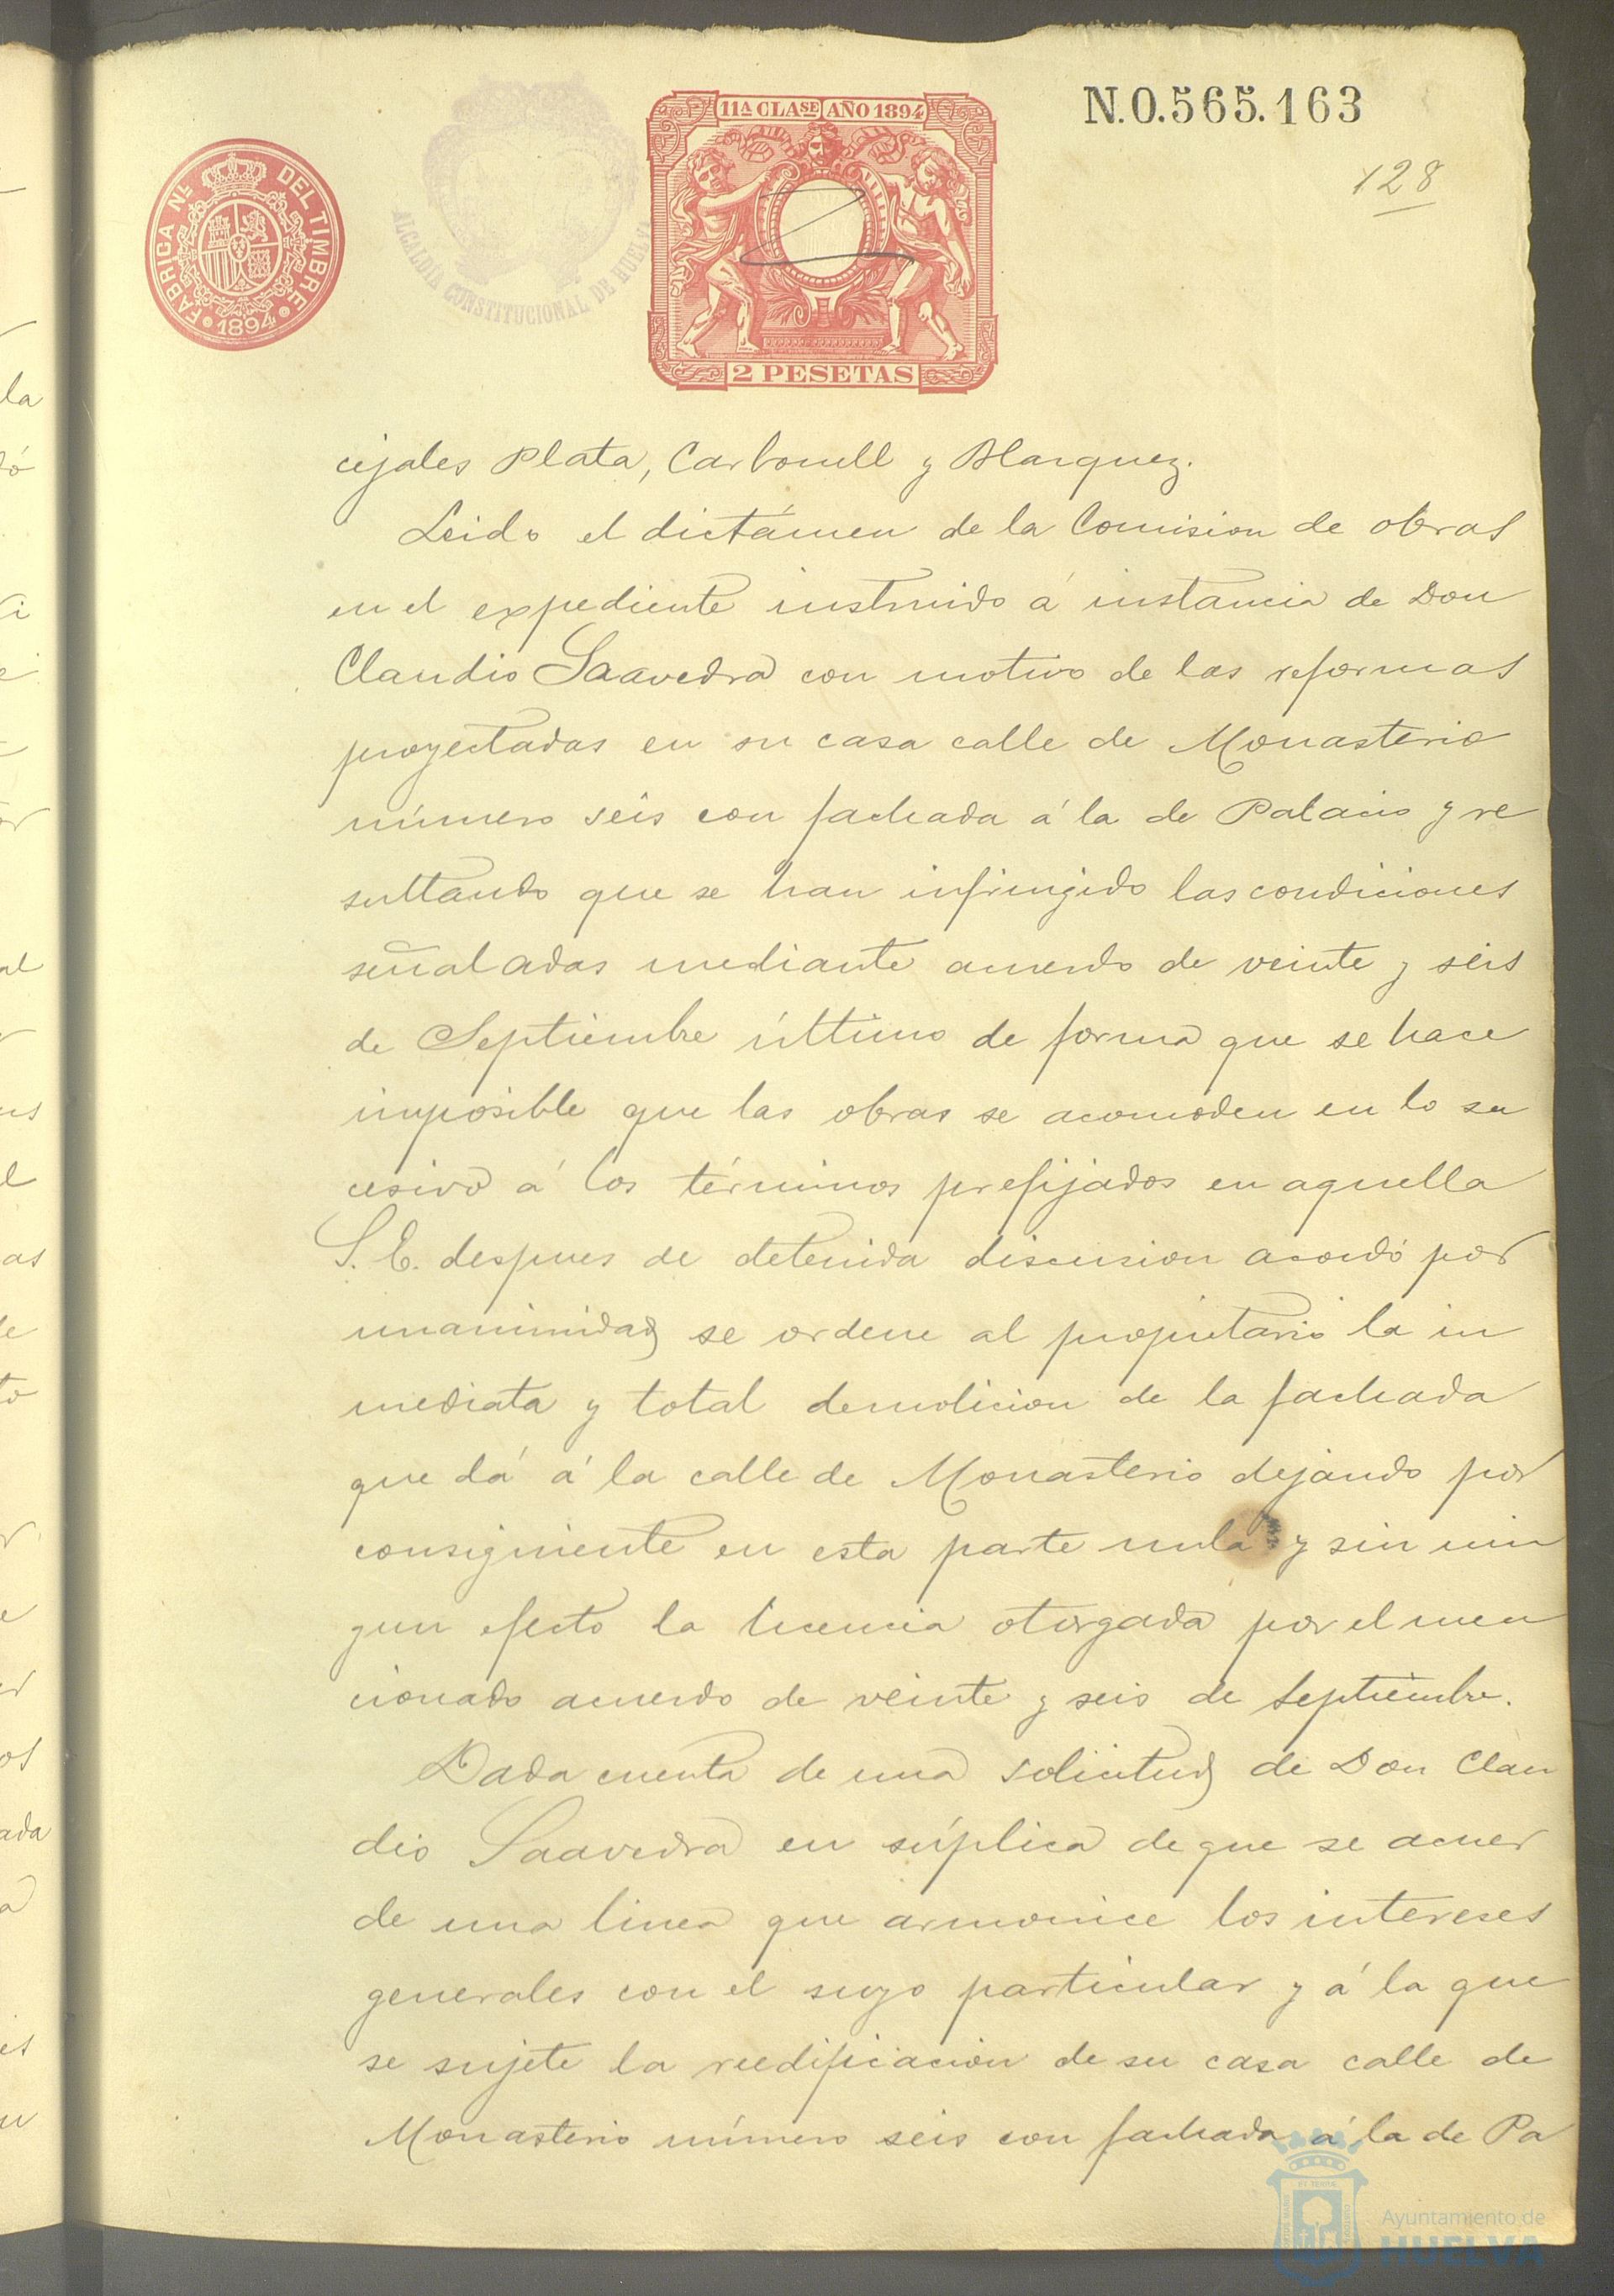 N.0.565.163
128
11ª CLASE AÑO 1894
2 PESETAS
FABRICA NL. DEL TIMBRE
1894
ALCALDIA CONSTITUCIONAL DE HUELVA
cejales Plata, Carbonell y Marquez.
Leido el dictámen de la Comision de obras
en el expediente instruido á instancia de Don
Claudio Saavedra con motivo de las reformas
proyectadas en su casa calle de Monasterio
número seis con fachada á la de Palacio y re
sultando que se han infringido las condiciones
señaladas mediante acuerdo de veinte y seis
de Septiembre último de forma que se hace
imposible que las obras se acomoden en lo su
cesivo á los términos prefijados en aquella
S. E. despues de detenida discusion acordó por
unanimidad se ordene al propietario la in
mediata y total demolicion de la fachada
que dá á la calle de Monasterio dejando por
consiguiente en esta parte nula y sin nin
gun efecto la licencia otorgada por el men
cionado acuerdo de veinte y seis de Septiembre.
Dada cuenta de una solicitud de Don Clau
dio Saavedra en súplica de que se acuer
de una linea que armonice los intereses
generales con el suyo particular y á la que
se sujete la reedificacion de su casa calle de
Monasterio número seis con fachada á la de Pa
Ayuntamiento de
HUELVA